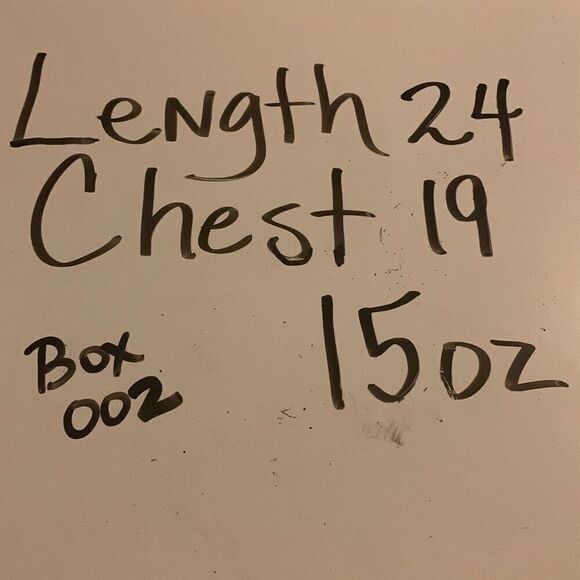 Length 24
Chest 19
15oz
Box
002